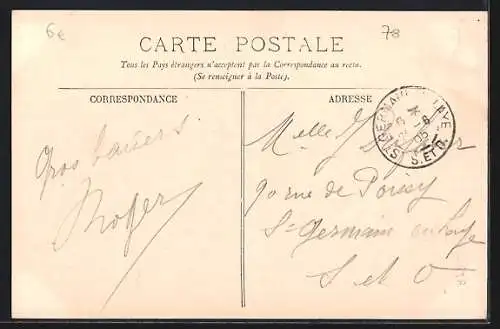 6€
78
CARTE POSTALE
Tous les Pays étrangers n'acceptent pas la Correspondance au recto.
(Se renseigner à la Poste).
CORRESPONDANCE
ADRESSE
Gros baisers
Roger
Melle
rue de Poissy
St Germain en Laye
S et O
ST GERMAIN LAYE
S. ET O.